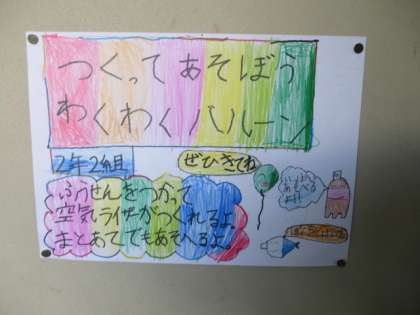 つくってあそぼう
わくわくバルーン
2年2組
ぜひきてね
ふうせんをつかって
空気ライザーがつくれるよ。
まとあてでもあそべるよ。